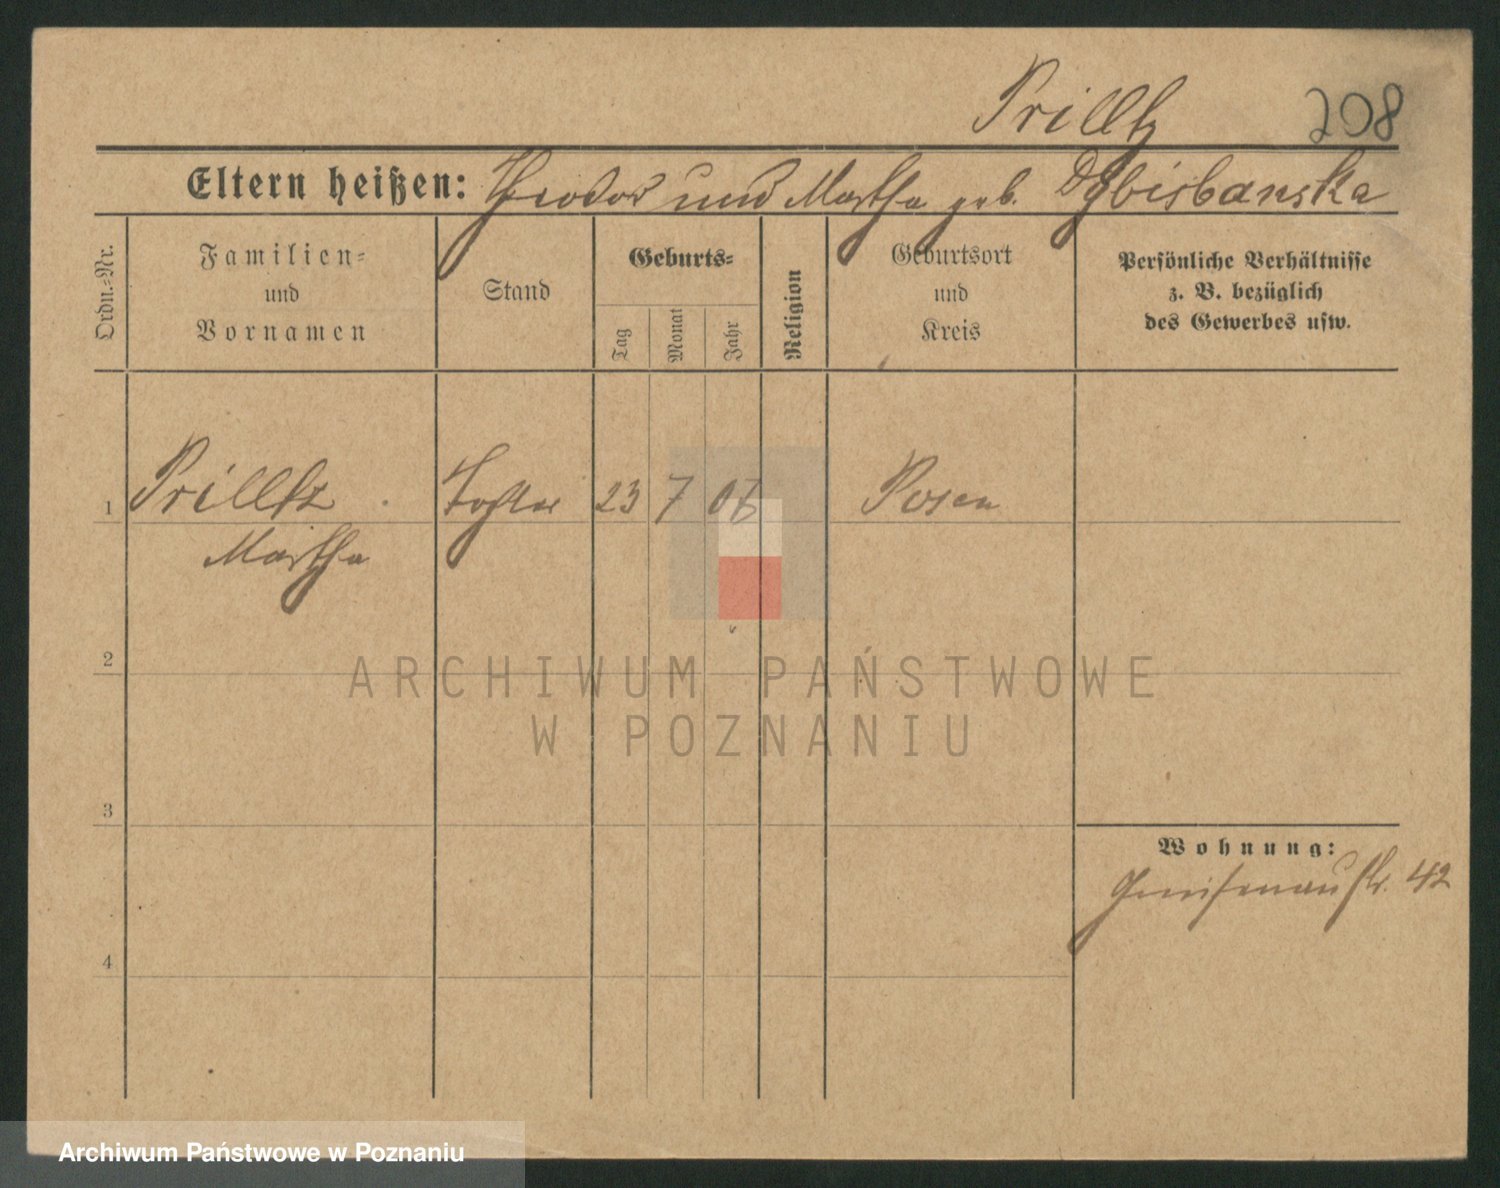 Prilltz 208
Eltern heißen: Theodor und Martha geb. Dybisbanska
Ordn.-Nr.
Familien-
und
Vornamen
Stand
Geburts-
Tag
Monat
Jahr
Religion
Geburtsort
und
Kreis
Persönliche Verhältnisse
z. B. bezüglich
des Gewerbes usw.
1 Prilltz Tochter 23 7 Posen
Martha
2
ARCHIWUM PAŃSTWOWE
W POZNANIU
3
Wohnung:
Gneisenaustr. 42
4
Archiwum Państwowe w Poznaniu